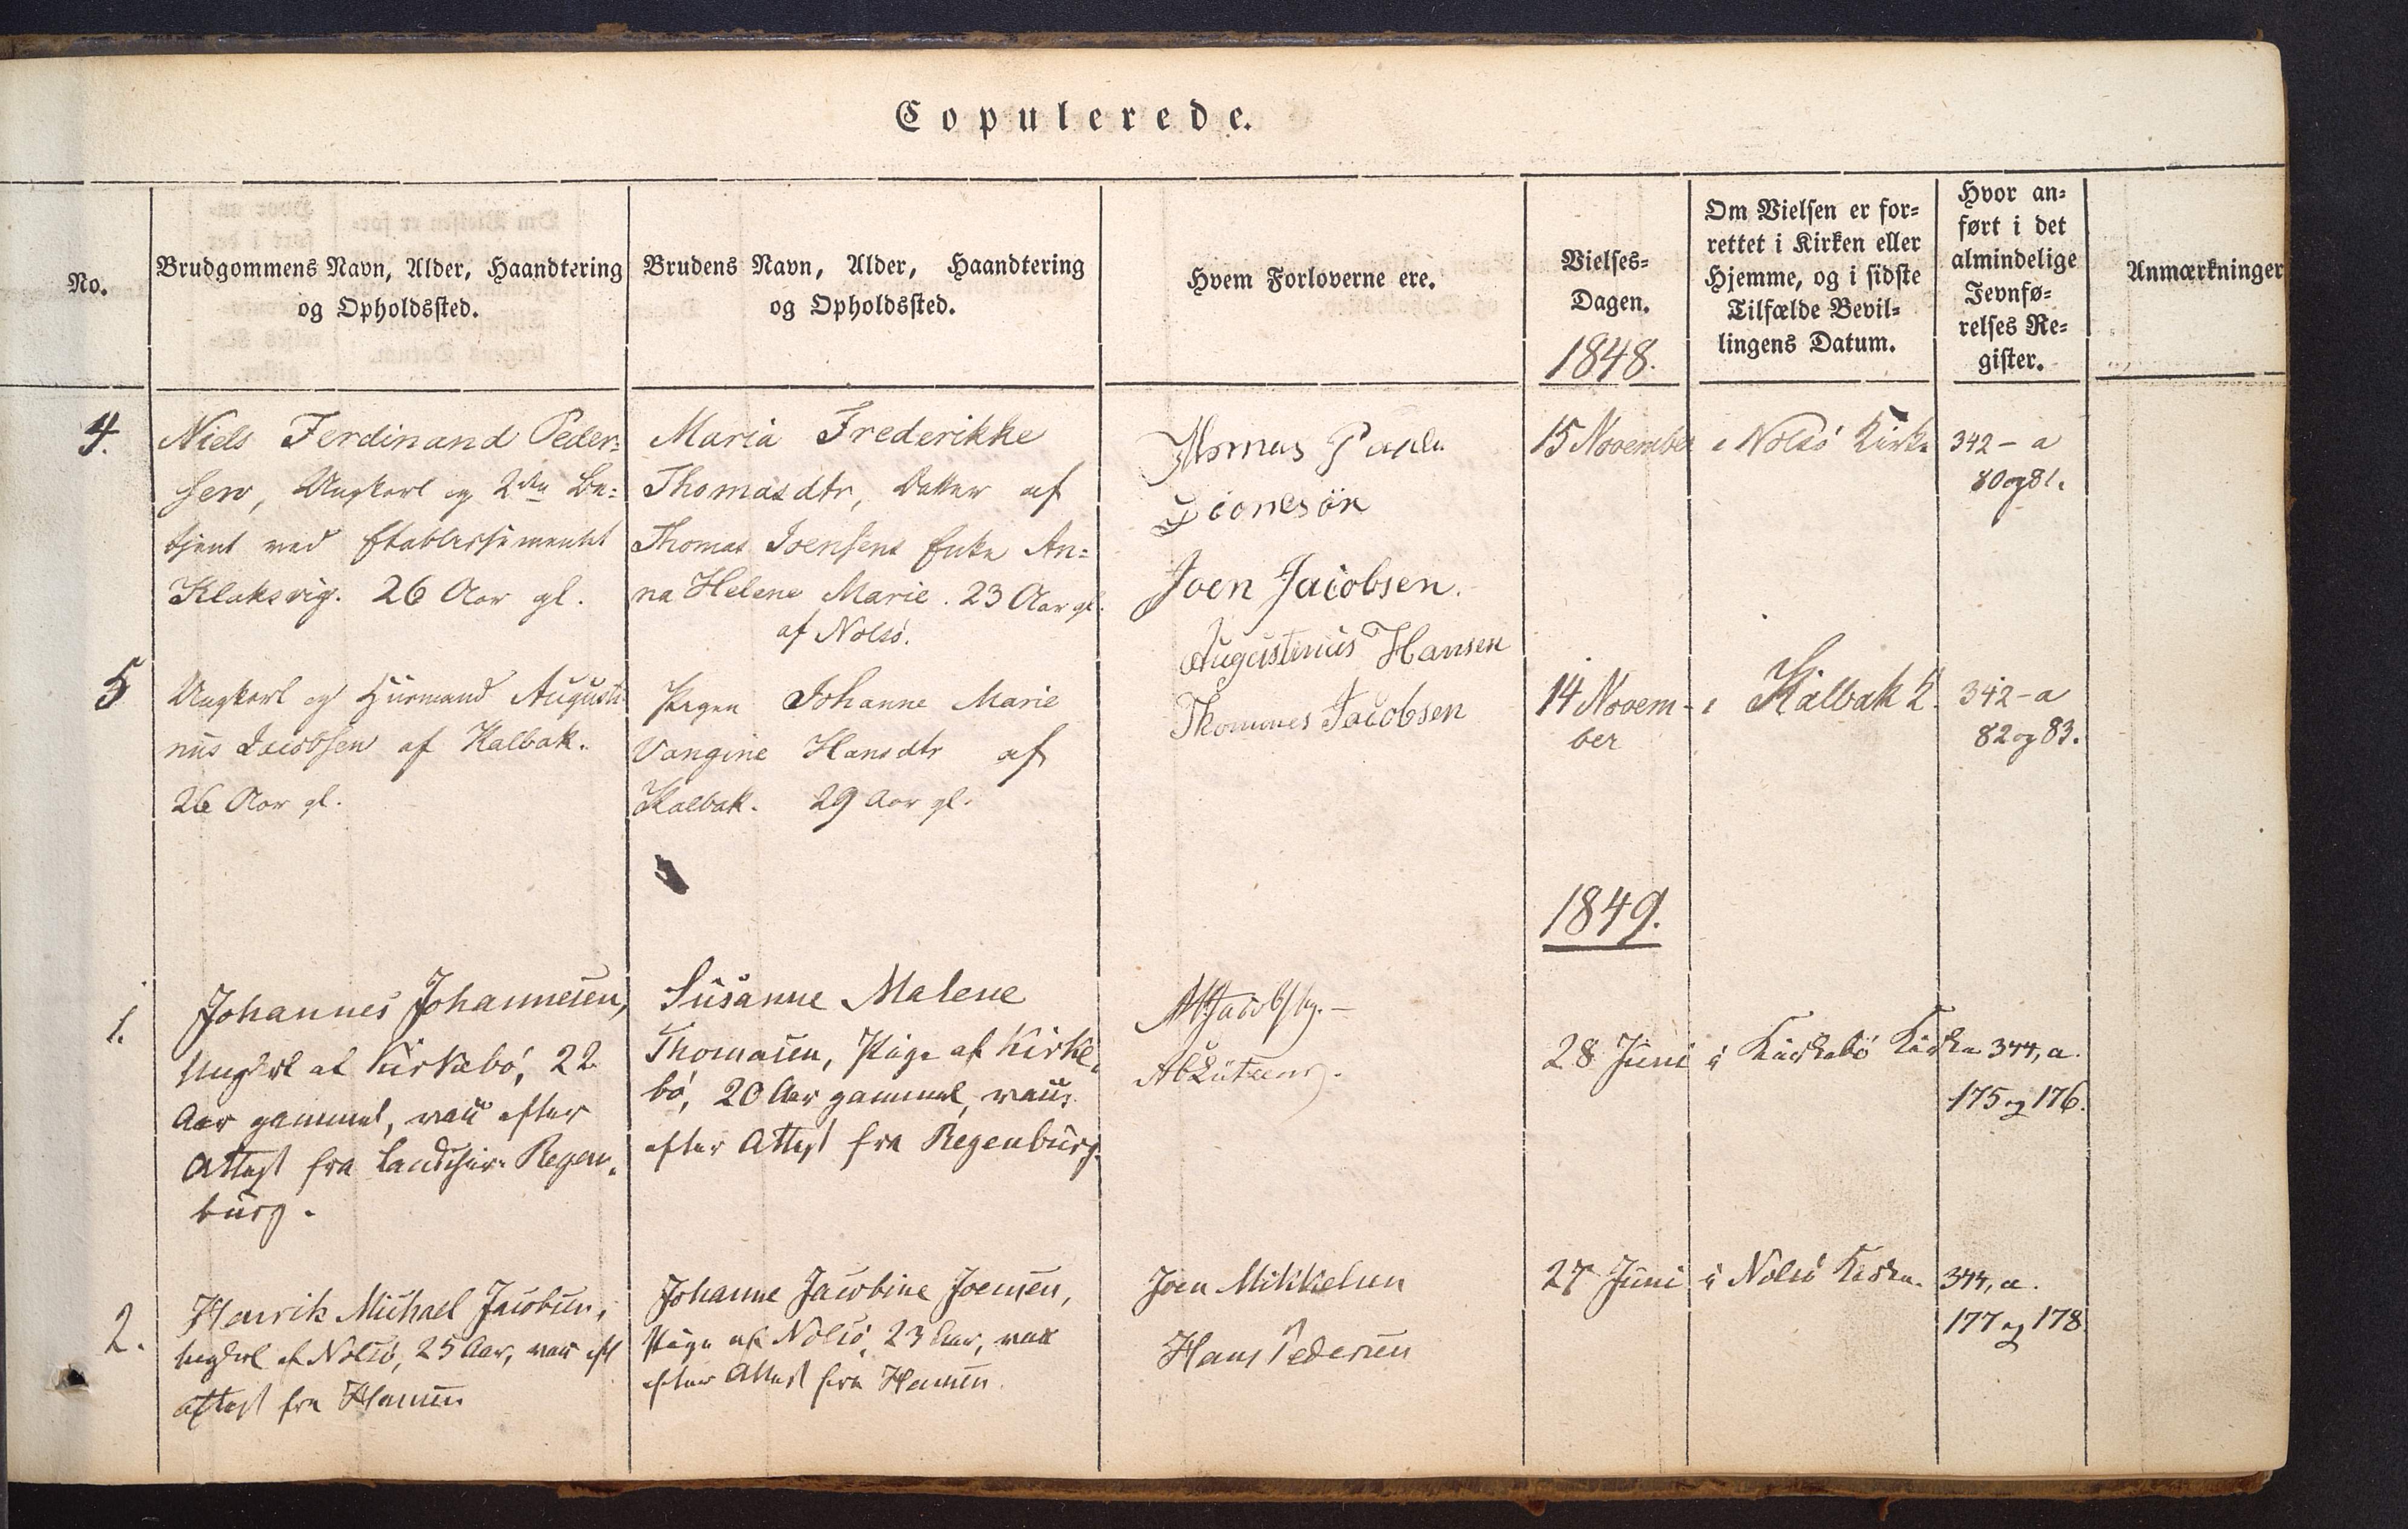 Copulerede.
No.
Brudgommens Navn, Alder, Haandtering
og Opholdssted.
Brudens Navn, Alder, Haandtering
og Opholdssted.
Hvem Forloverne ere.
Vielses-
Dagen.
1848.
Om Vielsen er for-
rettet i Kirken eller
Hjemme, og i sidste
Tilfælde Bevil-
lingens Datum.
Hvor an-
ført i det
almindelige
Jevnfø-
relses Re-
gister.
Anmærkninger
4.
Niels Ferdinand Peder-
sen, Ungkarl og 2den Be-
tjent ved Etablissementet
Klaksvig. 26 Aar gl.
Maria Frederikke
Thomasdtr, Datter af
Thomas Joensens Enke An-
na Helene Marie. 23 Aar gl.
af Nolsö.
Joen Jacobsen.
15 November
i Nolsö Kirke
342 - a
80 og 81.
5
Ungkarl og Huusmand Augusti-
nus Jacobsen af Kalbak.
26 Aar gl.
Pigen Johanne Marie
Vangine Hansdtr af
Kalbak. 29 Aar gl.
Augustinus Hansen
Thommes Jacobsen
14 Novem-
ber
i Kalbak K.
342 - a
82 og 83.
1849.
1.
Johannes Johannesen,
Ungkarl af Kirkebö, 22
Aar gammel, vacc. efter
Attest fra Landchir. Regen-
burg.
Susanne Malene
Thomasen, Pige af Kirke-
bö, 20 Aar gammel, vacc.
efter Attest fra Regenburg.
28 Juni
i Kirkebö Kirke
344, a.
175 og 176.
2.
Henrik Michael Jacobsen,
Ungkarl af Nolsö, 25 Aar, vacc. eft
Attest fra Hansen
Johanne Jacobine Joensen,
Pige af Nolsö, 23 Aar, vacc
efter Attest fra Hansen.
Joen Mikkelsen
Hans Pedersen
27 Juni
i Nolsö Kirke.
344, a.
177 og 178.